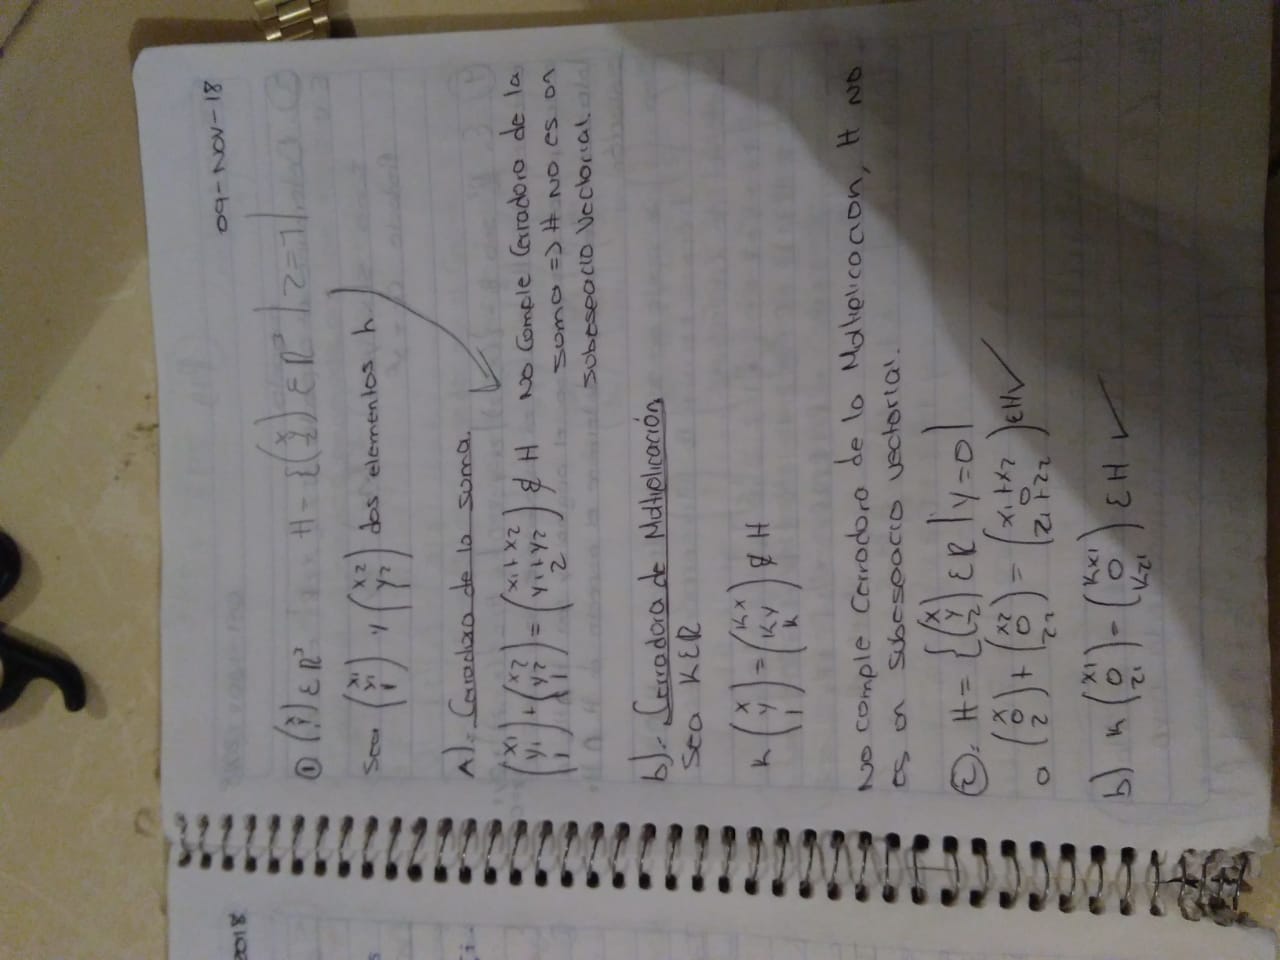 09-NOV-18
① (x y) ε ℝ³ H = {(x y z) ε ℝ³ | z=1|
Sea (x1 y1 1) y (x2 y2) dos elementos h
A).- Cerradora de la suma.
(x1 y1 1) + (x2 y2 1) = (x1+x2 y1+y2 2) ∉ H No Comple Cerradora de la
suma => H no es on
subespacio Vectorial.
b).- Cerradora de Moltiplicación
Sea K ε ℝ
K (x y 1) = (Kx Ky K) ∉ H
No comple Cerradora de la Moltiplicacion, H no
es on subespacio vectorial.
②.- H = {(x y z) ε ℝ | y=0|
a (x 0 z) + (x2 0 z2) = (x1+x2 0 z1+z2) εH ✓
b) K (x1 0 z1) = (Kx1 0 Kz1) ε H ✓
2018